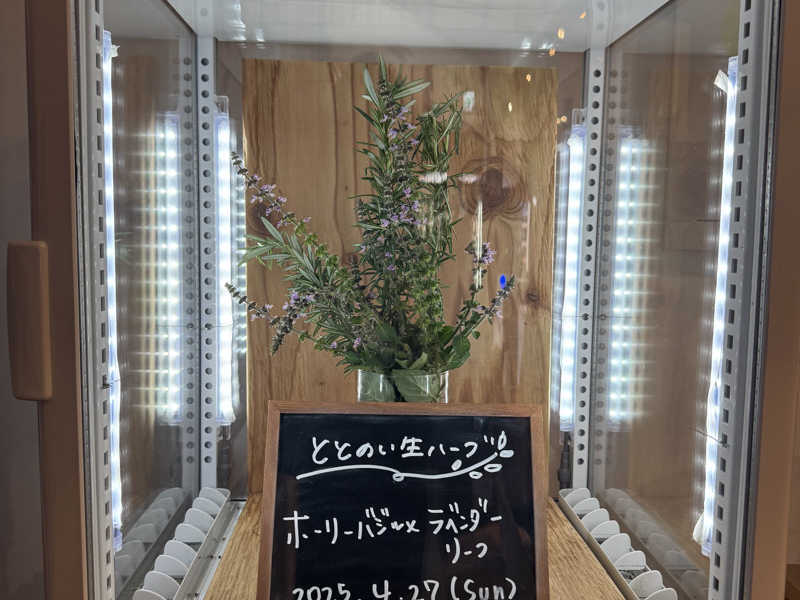 ととのい生ハーブ
ホーリーバジル×ラベンダー
リーフ
2025.4.27(Sun)